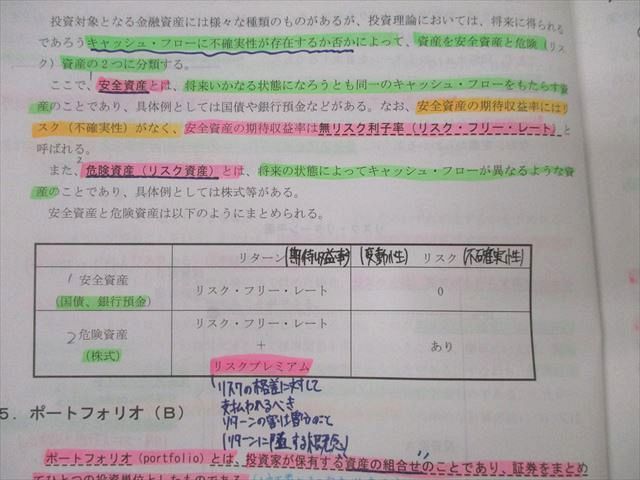 投資対象となる金融資産には様々な種類のものがあるが、投資理論においては、将来に得られる
であろうキャッシュ・フローに不確実性が存在するか否かによって、資産を安全資産と危険（リス
ク）資産の２つに分類する。
1
ここで、安全資産とは、将来いかなる状態になろうとも同一のキャッシュ・フローをもたらす資
産のことであり、具体例としては国債や銀行預金などがある。なお、安全資産の期待収益率にはリ
スク（不確実性）がなく、安全資産の期待収益率は無リスク利子率（リスク・フリー・レート）と
呼ばれる。
2
また、危険資産（リスク資産）とは、将来の状態によってキャッシュ・フローが異なるような資
産のことであり、具体例としては株式等がある。
安全資産と危険資産は以下のようにまとめられる。
リターン (期待収益率) (変動性) リスク (不確実性)
1 安全資産
（国債、銀行預金） リスク・フリー・レート 0
2 危険資産
（株式）
リスク・フリー・レート
＋
リスクプレミアム
あり
リスクの格差に対して
支払われるべき
リターンの割増分のこと
(リターンに属する概念)
5．ポートフォリオ（B）
ポートフォリオ（portfolio）とは、投資家が保有する資産の組合せのことであり、証券をまとめ
てひとつの投資単位としたものである